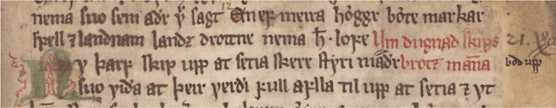 nema suo sem aðr er sagt En ef meira høggr bøte markar
spell & landnam landz drottne nema h̅ lofe Um dugnad skips 21.
Nv þarf skip upp at setia skere styri maðr brotz manna bod upp
suo vida at þeir verdi full aflla til upp at setia & vt